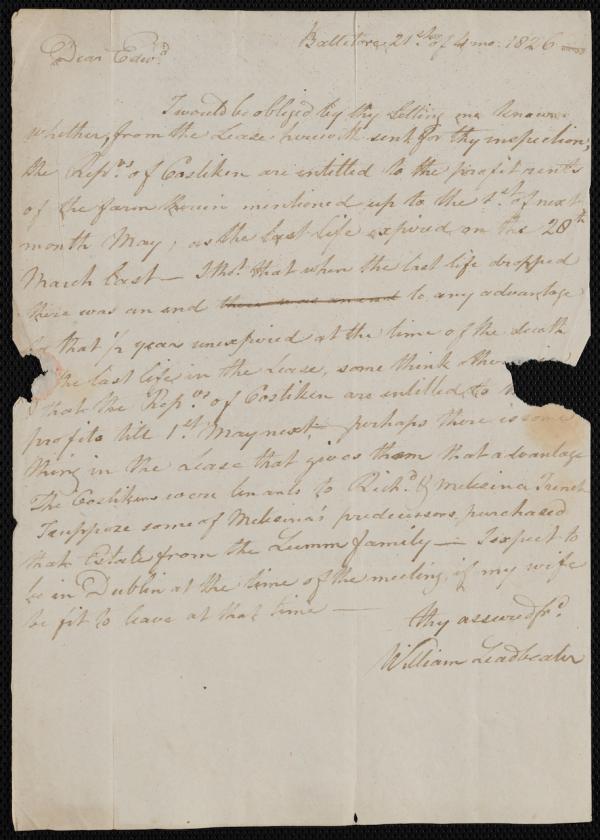 Ballitore, 21st of 4 mo. 1826
Dear Edwd
I would be obliged by thy letting me know
whether, from the Lease herewith sent for thy inspection,
the Repvs of Costiken are entitled to the profit rents
of the farm therein mentioned up to the 1st of next
month May, as the last life expired on the 28th
March last — I tho't that when the last life dropped
there was an end there was an end to any advantage
that ½ year unexpired at the time of the death
the last life in the Lease, some think
that the Repvs of Costiken are entitled to
profits till 1st May next, — perhaps there is some
thing in the Lease that gives them that advantage
The Costikens were tenants to Richd & Melesina Trench
I suppose some of Melesina's predecessors purchased
that Estate from the Lumm family — I expect to
be in Dublin at the time of the meeting, if my wife
be fit to leave at that time —
thy assured frd.
William Leadbeater